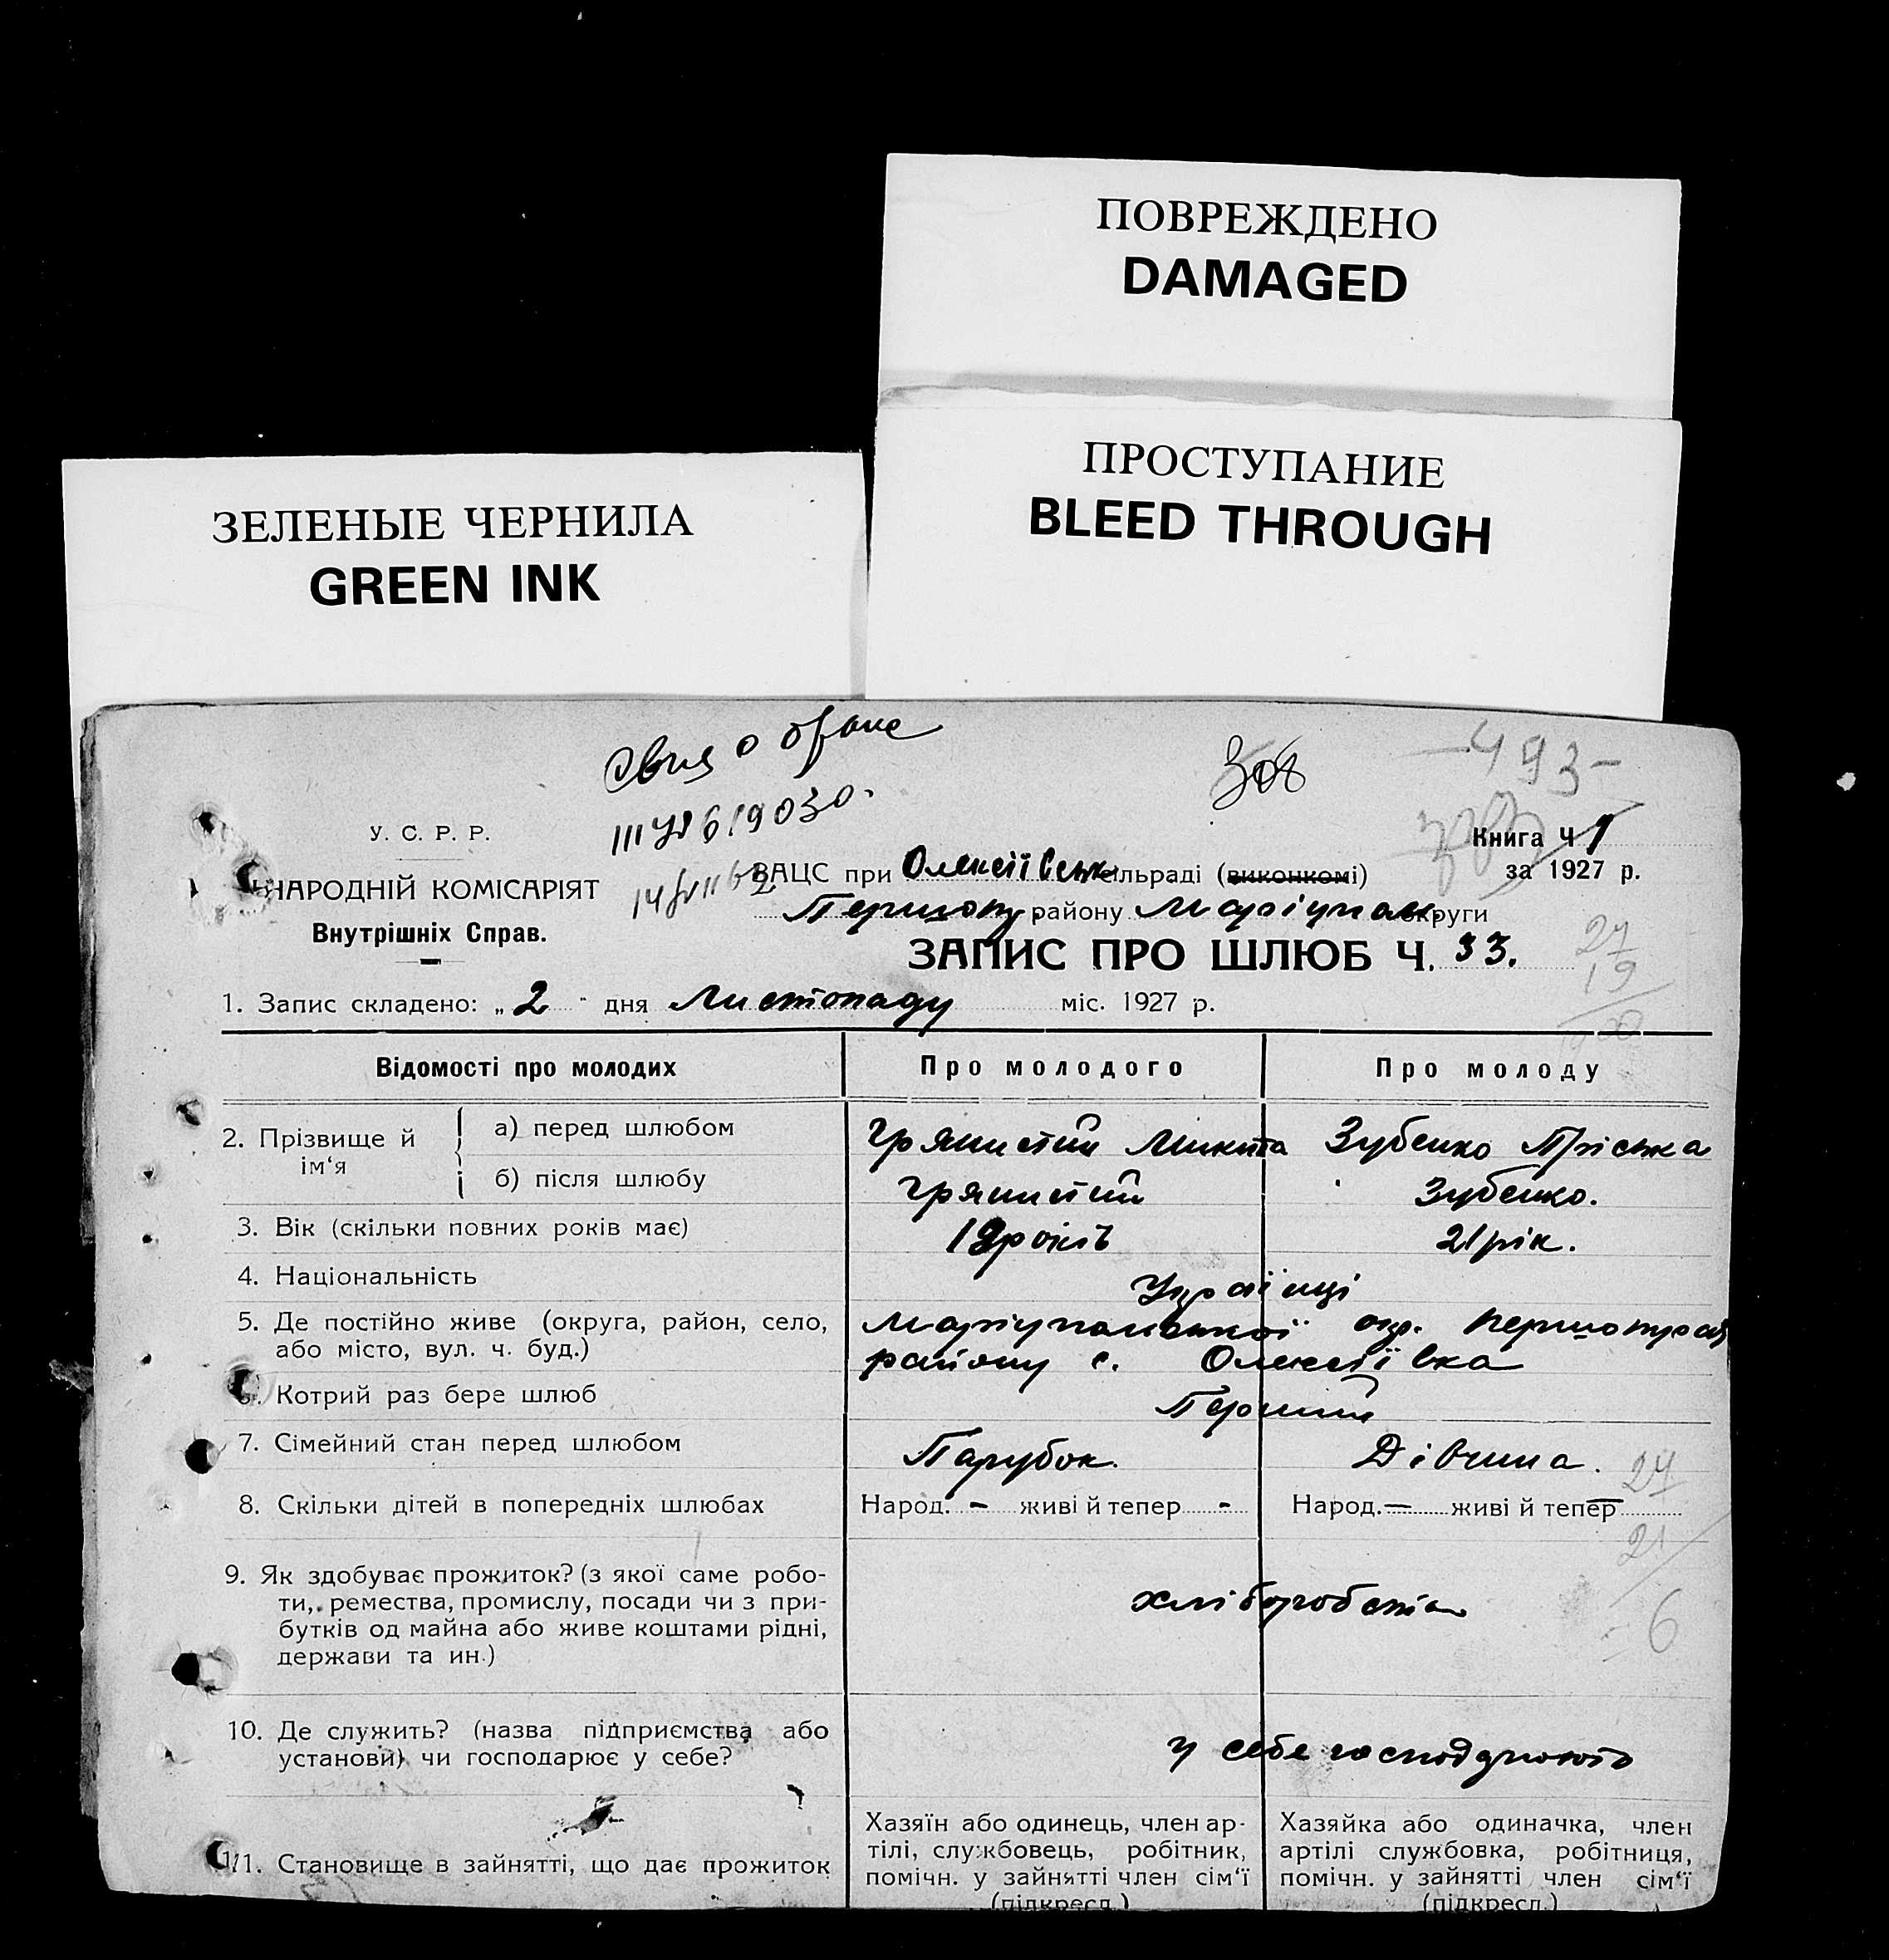 ПОВРЕЖДЕНО
DAMAGED
ПРОСТУПАНИЕ
BLEED THROUGH
ЗЕЛЕНЫЕ ЧЕРНИЛА
GREEN INK
о браке
308
-493-
У. С. Р. Р.
НАРОДНІЙ КОМІСАРІЯТ
Внутрішніх Справ.
Книга Ч 1
за 1927 р.
ЗАЦС при Олексіївськ сільраді (виконкомі)
району Маріупольк. округи
ЗАПИС ПРО ШЛЮБ Ч. 33.
27
19
1. Запис складено: „2" дня Листопаду міс. 1927 р.
Відомості про молодих Про молодого Про молоду
2. Прізвище й ім‘я
а) перед шлюбом Микита Зубенко Пріська
б) після шлюбу Зубенко.
3. Вік (скільки повних років має) 19 років 21 рік.
4. Національність Українці
5. Де постійно живе (округа, район, село, Маріупольської окр.
або місто, вул. ч. буд.) району с. Олексіївка
6. Котрий раз бере шлюб Перший
7. Сімейний стан перед шлюбом Парубок. Дівчина.
27
8. Скільки дітей в попередніх шлюбах Народ. - живі й тепер - Народ. — живі й тепер —
21
6
9. Як здобуває прожиток? (з якої саме робо-
ти, ремества, промислу, посади чи з при- хліборобств
бутків од майна або живе коштами рідні,
держави та ин.)
10. Де служить? (назва підприємства або
установи) чи господарює у себе? у себе господарюють
Хазяїн або одинець, член ар- Хазяйка або одиначка, член
тілі, службовець, робітник, артілі службовка, робітниця,
11. Становище в зайнятті, що дає прожиток помічн. у зайнятті член сім‘ї помічн. у зайнятті член сім‘ї
(підкресл.) (підкресл.)